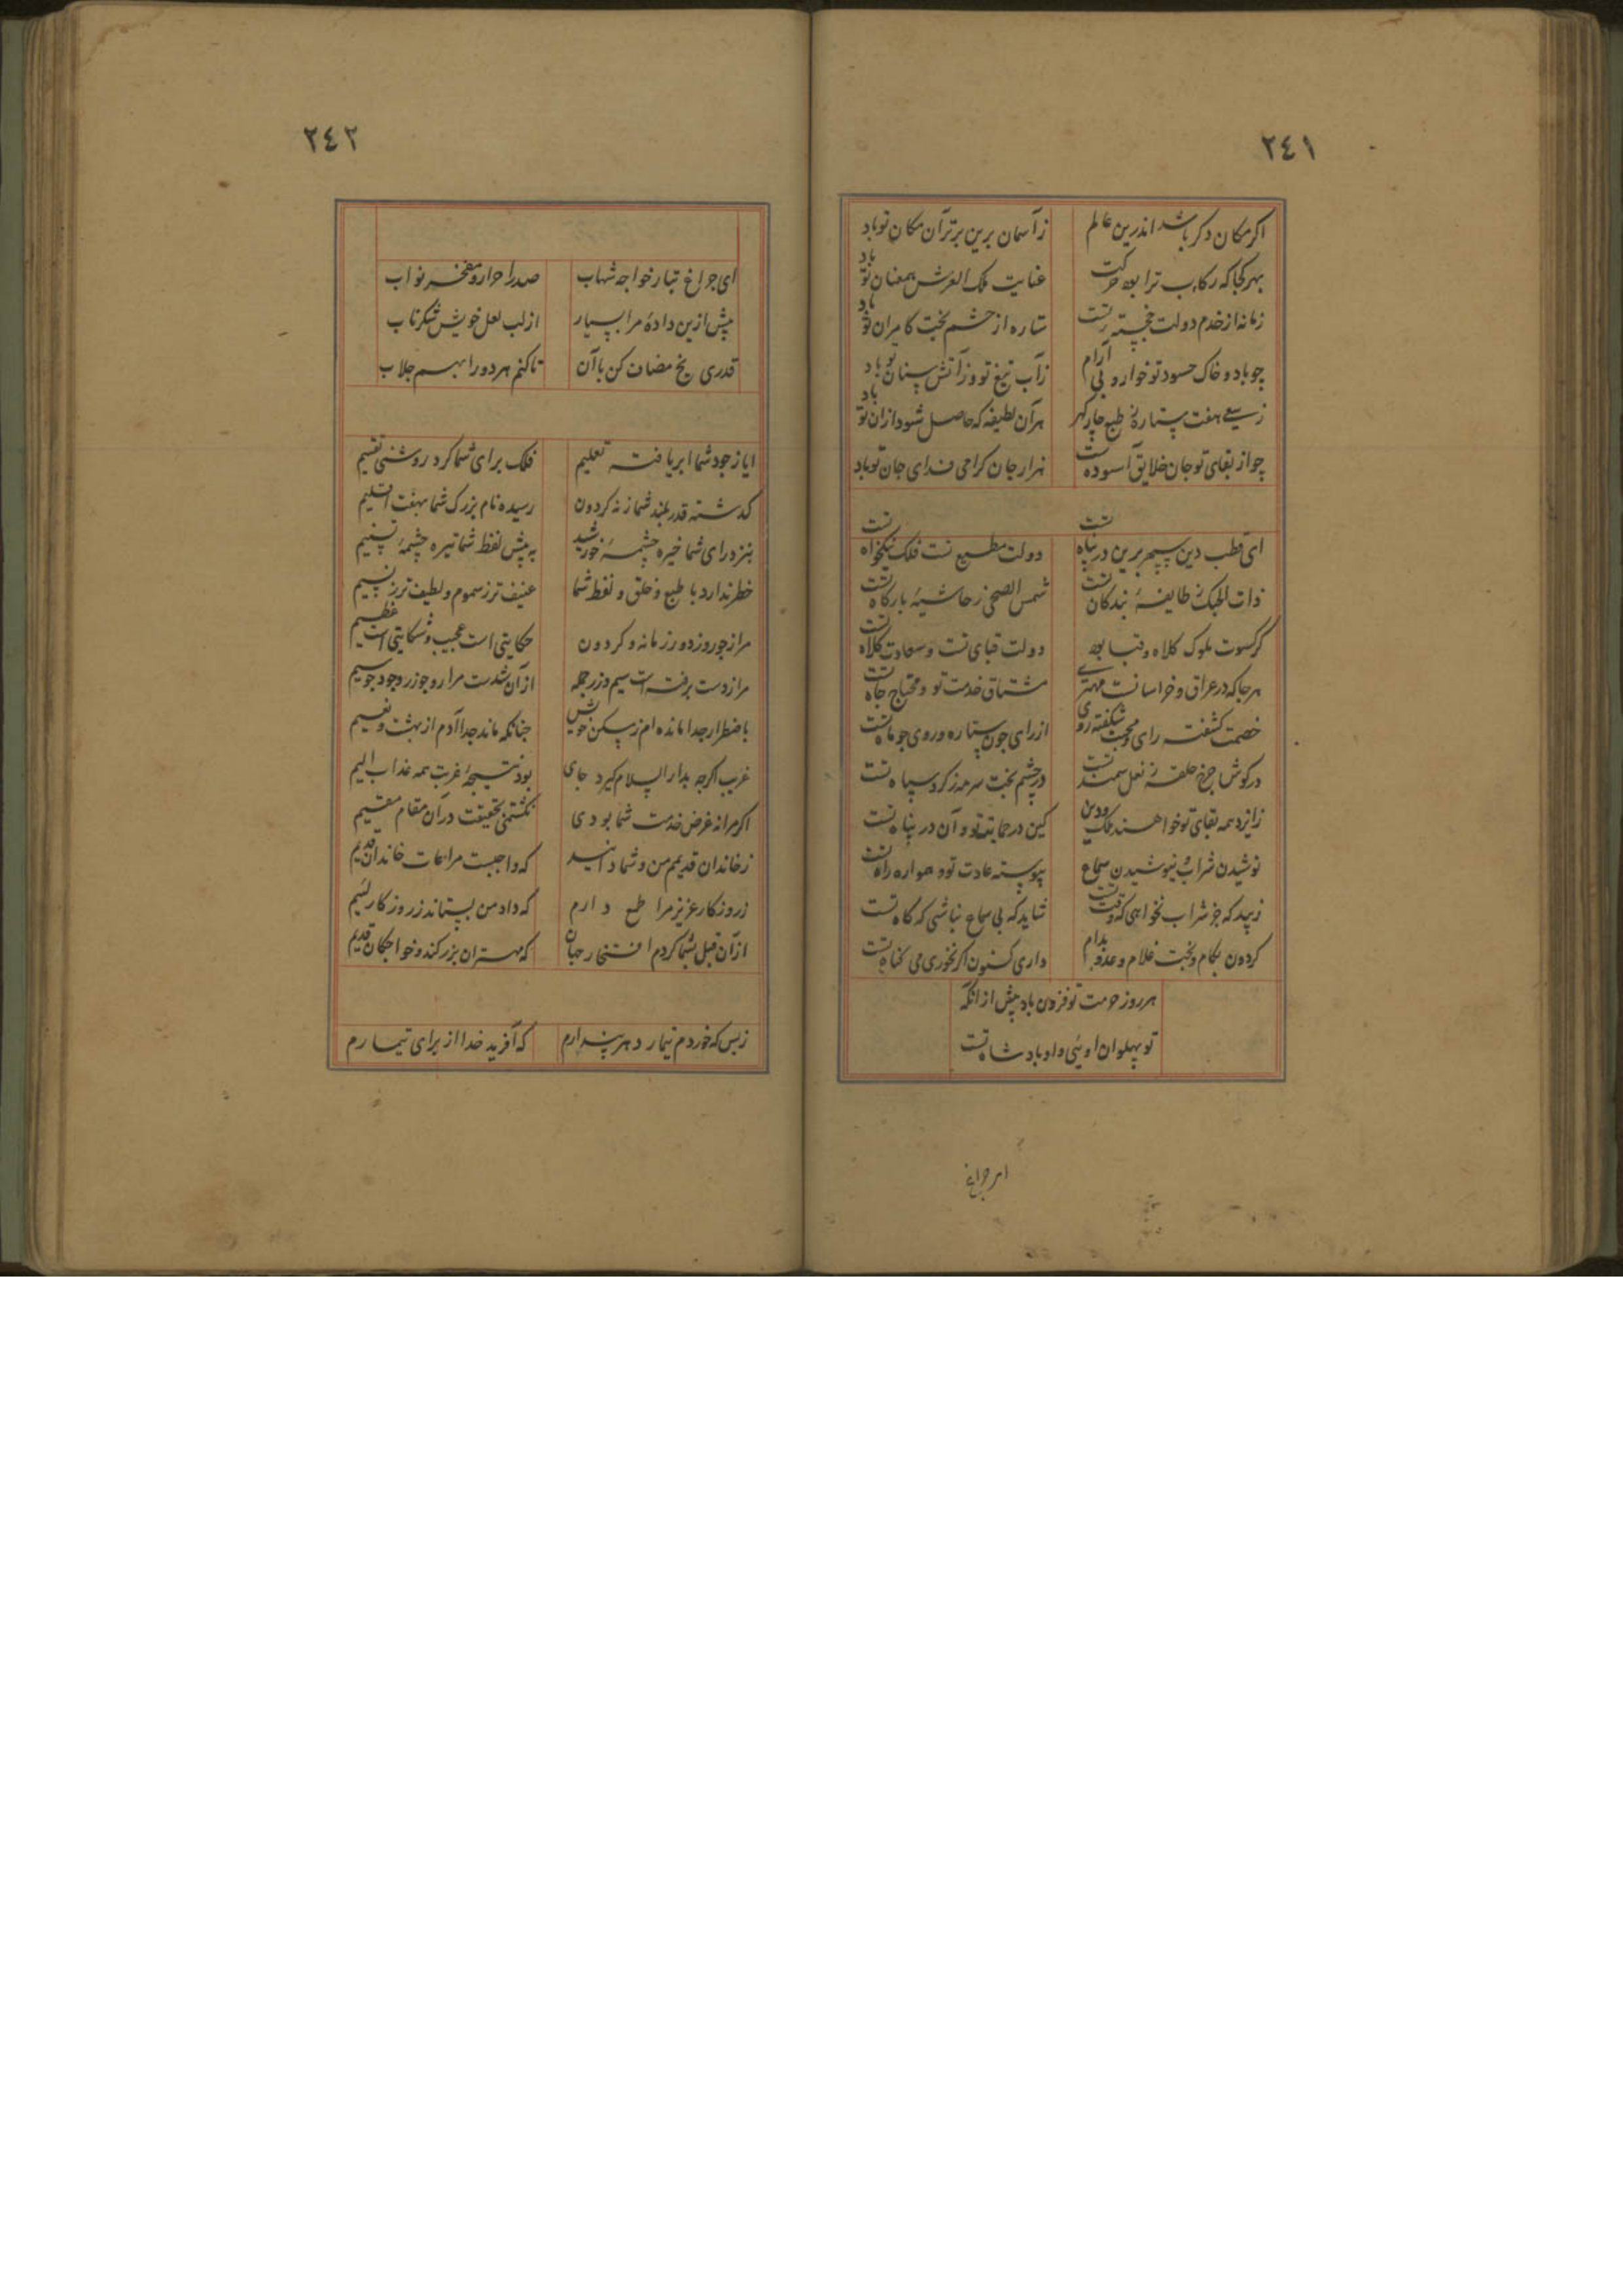 ٢٤١
اکر مکان دکر باشد اندرین عالم زآسمان برین برتر آن مکان تو باد
بهر کجا که رکاب ترا بود حرکت عنایت ملک العرش همعنان تو باد
زمانه از خدم دولت خجسته تست ستاره از حشم بخت کامران تو باد
چو باد و خاک حسود تو خوار و بی آرام زآب تیغ تو وز آتش سنان تو باد
زسعی هفت ستاره ز طبع چار کهر هر آن لطیفه که حاصل شود از آن تو باد
چو از بقای تو جان خلایق آسودست هزار جان کرامی فدای جان تو باد
ای قطب دین سپهر برین در پناه تست دولت مطیع تست فلک نیکخواه تست
ذات الحبک ز طایفهٔ بندکان تست شمس الضحی ز حاشیهٔ بارکاه تست
کر کسوت ملوک کلاه و قبا بود دولت قبای تست و سعادت کلاه تست
هر جا که در عراق و خراسانست مهتری مشتاق خدمت تو و محتاج جاه تست
خصمت کشفته رای و محبت شکفته روی از رای چون ستاره و روی چو ماه تست
در کوش چرخ حلقه ز نعل سمند تست در چشم بخت سرمه ز کرد سپاه تست
زایزد همه بقای تو خواهند ملک و دین کین در حمایت تو و آن در پناه تست
نوشیدن شراب و نیوشیدن سماع پیوسته عادت تو و همواره راه تست
زیبد که جز شراب نخواهی که وقت تست شاید که بی سماع نباشی که کاه تست
کردون بکام و بخت غلام و عدو بدام داری کنون اکر نخوری می کناه تست
هر روز حرمت تو فزون باد پیش از آنکه
تو پهلوان اوئی و او پادشاه تست
ای چراغ
٢٤٢
ای چراغ تبار خواجه شهاب صدر احرار و مفخر نواب
پیش ازین دادهٔ مرا بسیار از لب لعل خویش شکر ناب
قدری یخ مضاف کن با آن تا کنم هر دو را بهم جلاب
ایا ز جود شما ابر یافته تعلیم فلک برای شما کرد روشنی تقسیم
کذشته قدر بلند شما ز نه کردون رسیده نام بزرک شما بهفت اقلیم
بنزد رای شما خیره چشمهٔ خورشید به پیش لفظ شما تیره چشمهٔ تسنیم
خطر ندارد با طبع و خلق و لفظ شما عنیف تر ز سموم و لطیف تر ز نسیم
مرا ز جور و ز دور زمانه و کردون حکایتی است عجیب و شکایتی است عظیم
مرا ز دست برفته است سیم و زر جمله از آن شدست مرا رو چو زر وجود چو سیم
باضطرار جدا مانده ام ز مسکن خویش چنانکه ماند جدا آدم از بهشت و نعیم
غریب اکرچه بدار السلام کیرد جای بود نتیجهٔ غربت همه عذاب الیم
اکر مرا نه غرض خدمت شما بودی نکشتمی بحقیقت در آن مقام مقیم
ز خاندان قدیمم من و شما دانید که واجبست مراعات خاندان قدیم
ز روزکار عزیز مرا طمع دارم که داد من بستاند ز روزکار لئیم
از آن قبل بشما کردم افتخار جهان که مهتران بزرکند و خواجکان قدیم
ز بس که خوردم تیمار دهر پندارم که آفرید خدا از برای تیمارم